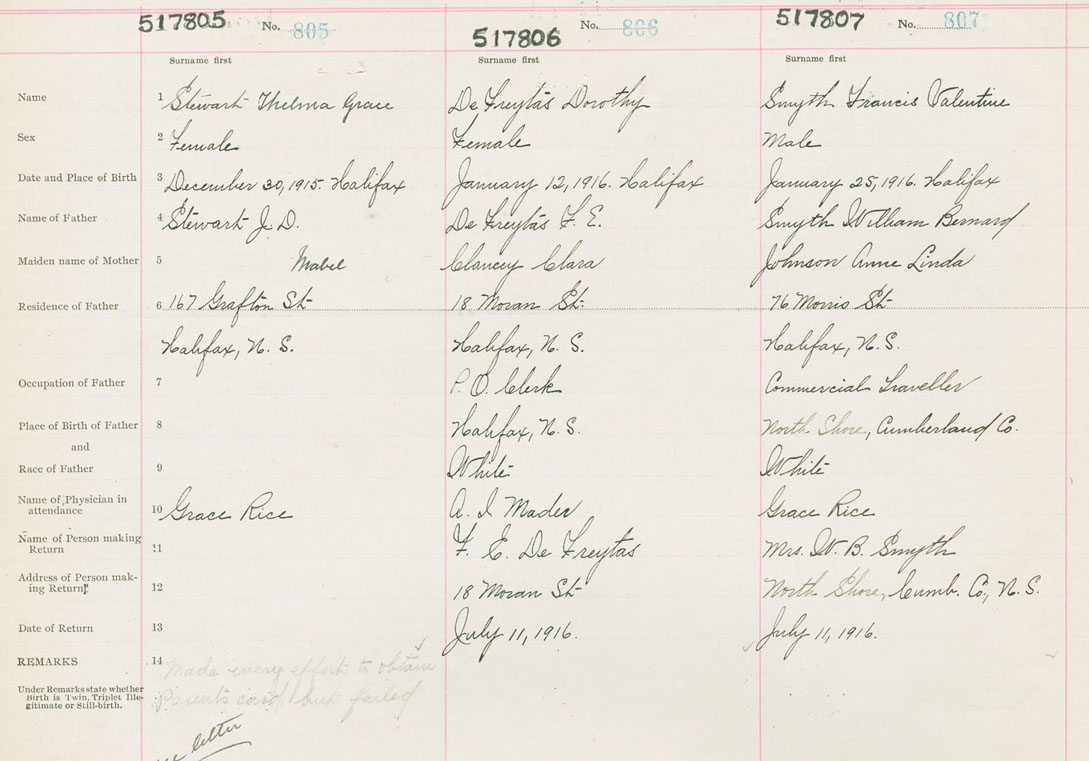 517805 No. 805 517806 No. 806 517807 No. 807
Surname first Surname first Surname first
Name 1 Stewart Thelma Grace De Freytas Dorothy Smyth Francis Valentine
Sex 2 Female Female Male
Date and Place of Birth 3 December 30, 1915. Halifax January 12, 1916. Halifax January 25, 1916. Halifax
Name of Father 4 Stewart J. D. De Freytas F. E. Smyth William Bernard
Maiden name of Mother 5 Mabel Clancey Clara Johnson Anne Linda
Residence of Father 6 167 Grafton St 18 Moran St. 76 Morris St
Halifax, N. S. Halifax, N. S. Halifax, N. S.
Occupation of Father 7 P. O. Clerk Commercial Traveller
Place of Birth of Father 8 Halifax, N. S. North Shore, Cumberland Co.
and
Race of Father 9 White White
Name of Physician in
attendance 10 Grace Rice A. I. Mader Grace Rice
Name of Person making
Return 11 F. E. De Freytas Mrs. W. B. Smyth
Address of Person mak-
ing Return 12 18 Moran St North Shore, Cumb. Co, N. S.
Date of Return 13 July 11, 1916. July 11, 1916.
REMARKS 14 Made every effort to obtain
Under Remarks state whether
Birth is Twin, Triplet Ille-
gitimate or Still-birth.
Parents card, but failed
letter